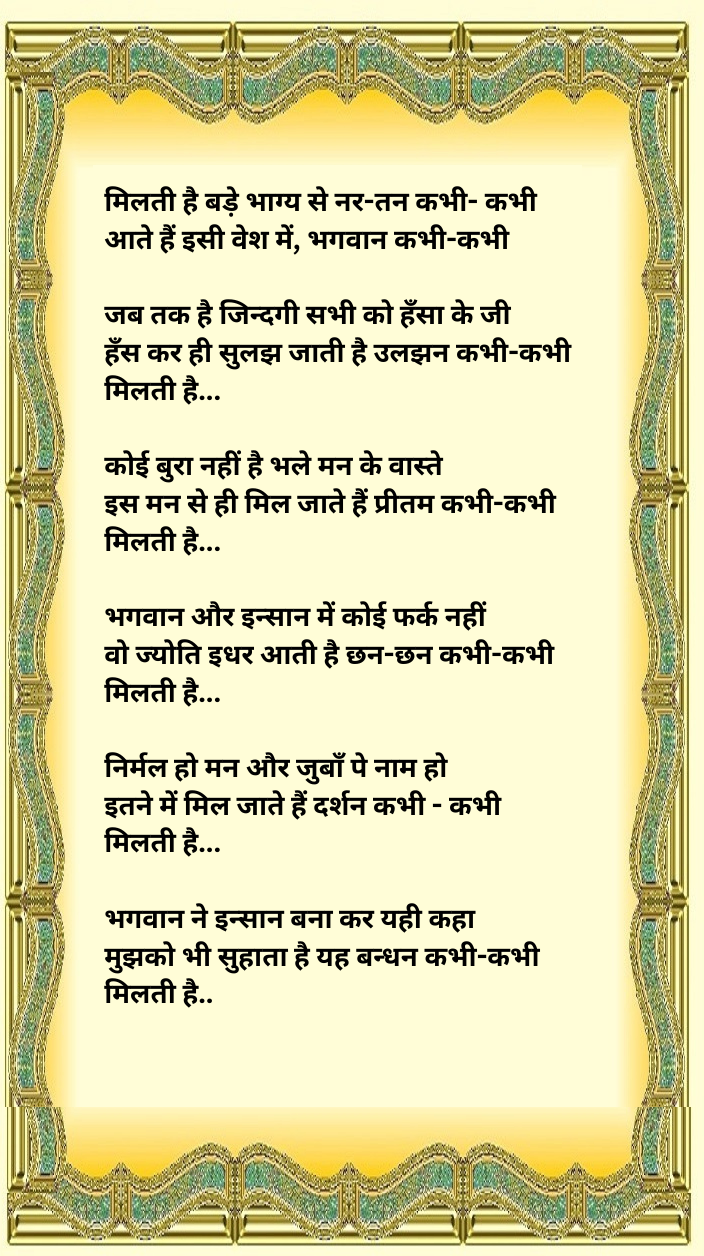 मिलती है बड़े भाग्य से नर-तन कभी- कभी
आते हैं इसी वेश में, भगवान कभी-कभी
जब तक है जिन्दगी सभी को हँसा के जी
हँस कर ही सुलझ जाती है उलझन कभी-कभी
मिलती है...
कोई बुरा नहीं है भले मन के वास्ते
इस मन से ही मिल जाते हैं प्रीतम कभी-कभी
मिलती है...
भगवान और इन्सान में कोई फर्क नहीं
वो ज्योति इधर आती है छन-छन कभी-कभी
मिलती है...
निर्मल हो मन और जुबाँ पे नाम हो
इतने में मिल जाते हैं दर्शन कभी - कभी
मिलती है...
भगवान ने इन्सान बना कर यही कहा
मुझको भी सुहाता है यह बन्धन कभी-कभी
मिलती है..